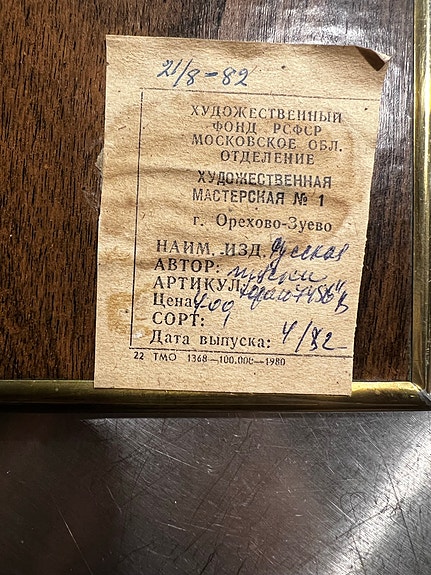 21/8-82
ХУДОЖЕСТВЕННЫЙ
ФОНД РСФСР
МОСКОВСКОЕ ОБЛ.
ОТДЕЛЕНИЕ
ХУДОЖЕСТВЕННАЯ
МАСТЕРСКАЯ № 1
г. Орехово-Зуево
НАИМ. ИЗД. Русская
АВТОР:
АРТИКУЛ:
Цена
СОРТ:
Дата выпуска: 4/82
22 ТМО 1368—100.000—1980